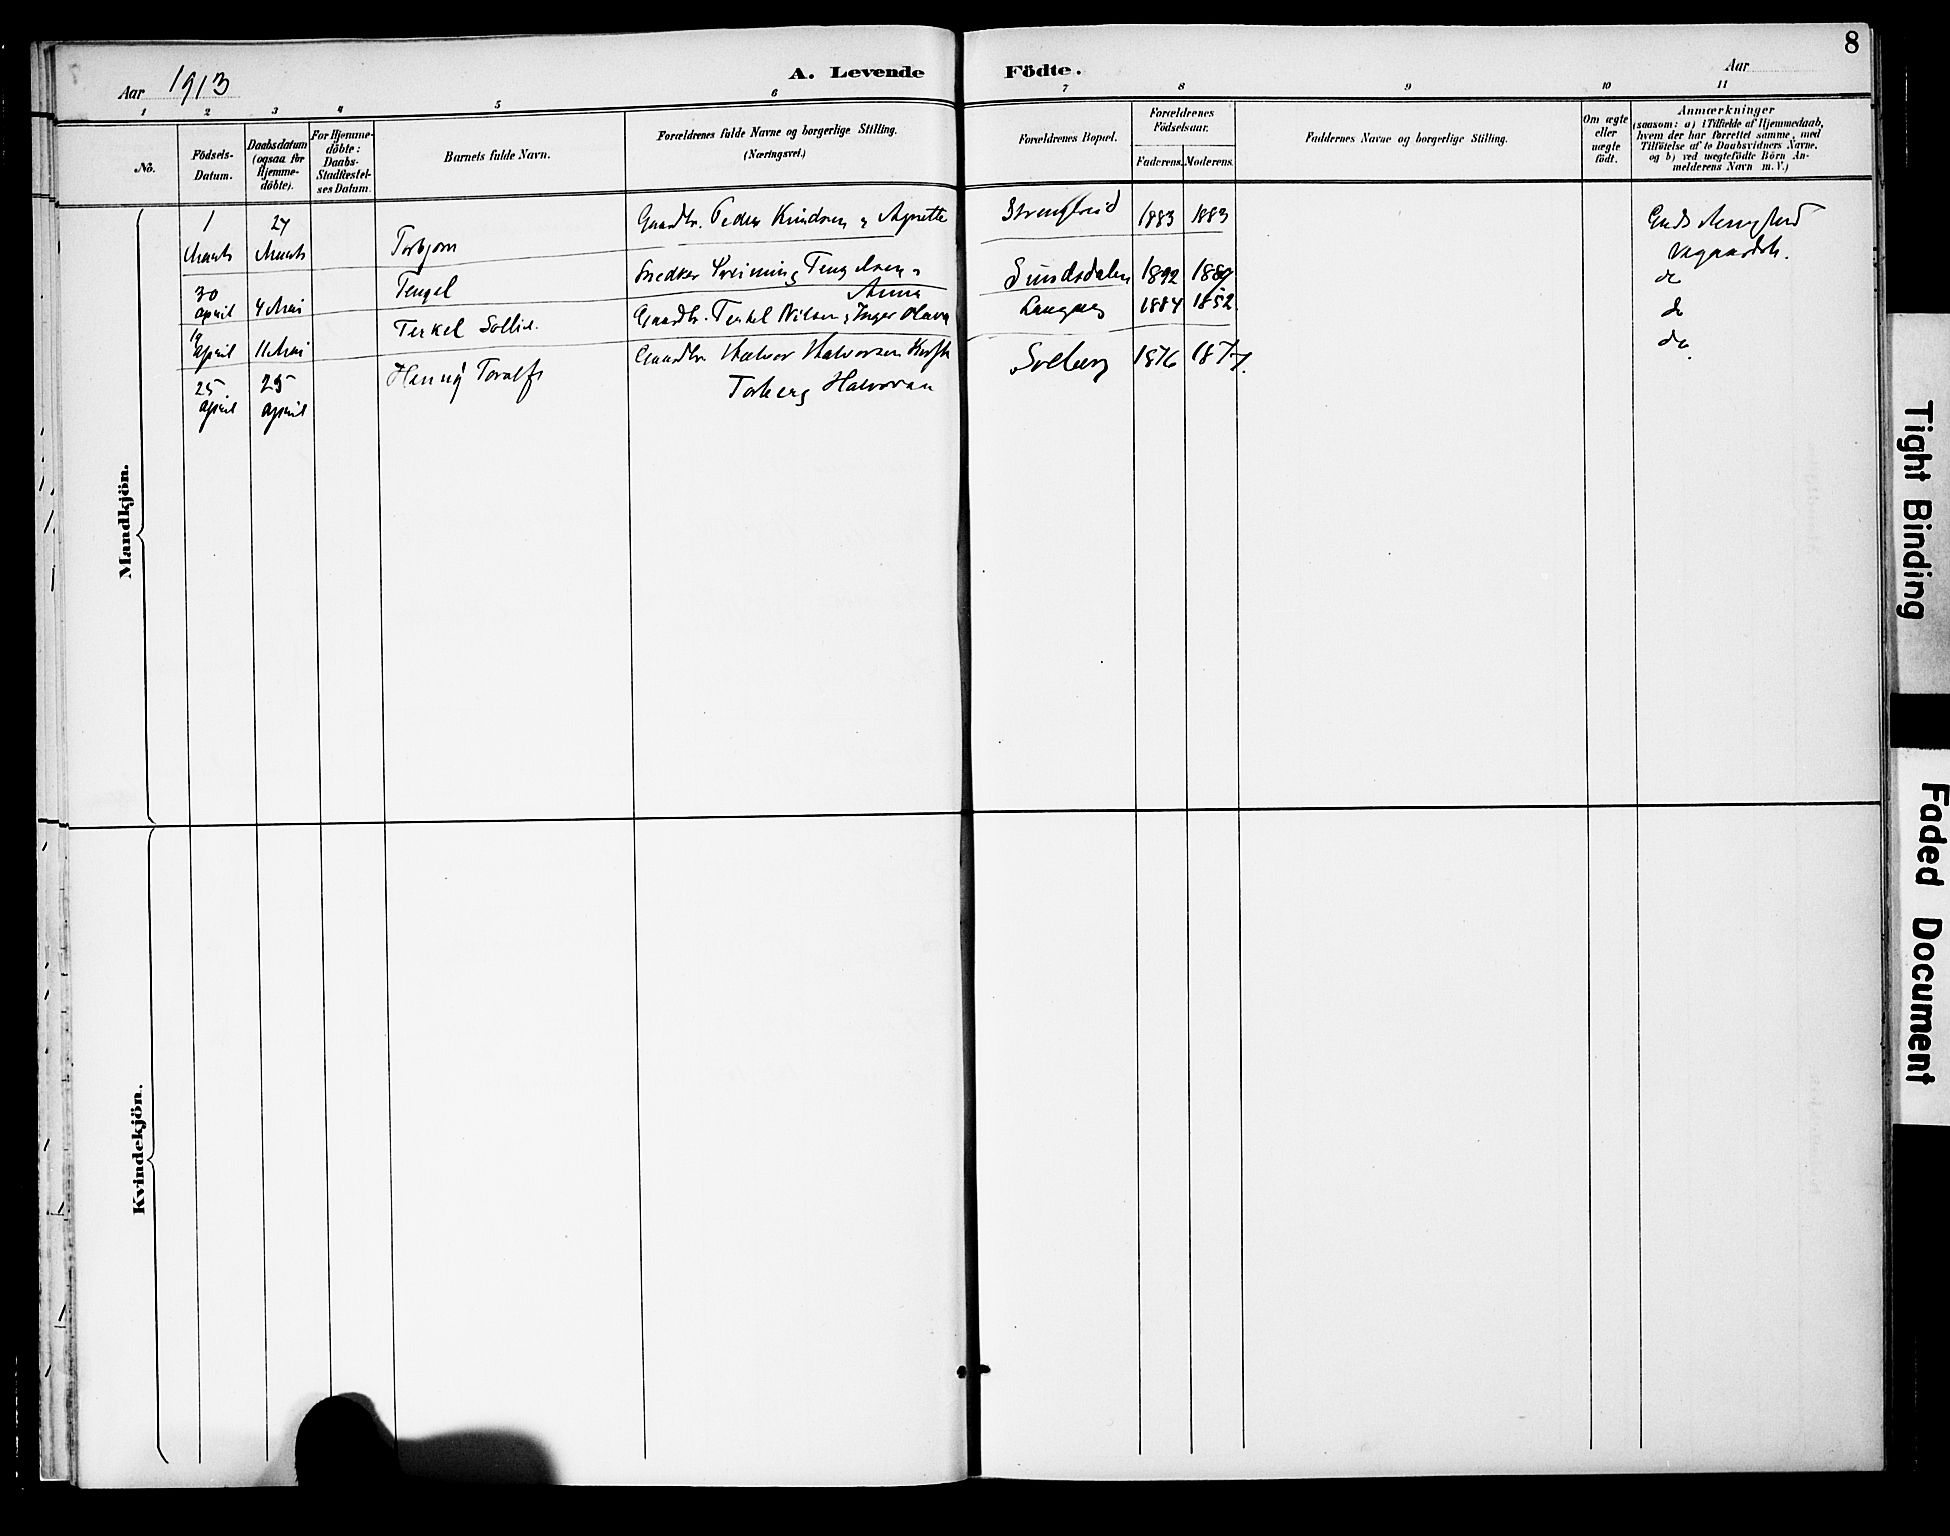 8
Aar 1913
A. Levende Födte.
Aar
1 2 3 4 5 6 7 8 9 10 11
No.
Födsels-
Datum.
Daabsdatum
(ogsaa for
Hjemme-
döbte).
For Hjemme-
döbte:
Daabs-
Stadfæstel-
ses Datum.
Barnets fulde Navn.
Forældrenes fulde Navne og borgerlige Stilling.
(Næringsvei.)
Forældrenes Bopæl.
Forældrenes
Födselsaar.
Faderens. Moderens.
Faddernes Navne og borgerlige Stilling.
Om ægte
eller
uægte
födt.
Anmærkninger
(saasom: a) i Tilfælde af Hjemmedaab,
hvem der har forrettet samme, med
Tilföielse af to Daabsvidners Navne,
og b) ved uægtefödte Börn An-
melderens Navn m. V.)
Mandkjön.
1 Marts 27 Marts Torbjørn Gaardbr. Peder Knudsen & Agnette 1883 1883
30 April 4 Mai Tengel Snedker Tengelsen & Anna Sundsdalen 1892
April 11 Mai Terkel Sollie. Gaardbr. Terkel Nilsen & Inger Olava Langnes 1884 1852.
25. April 25 April Henry Toralf Gaardbr Halvor Halvorsen
Torberg Halvorsen Solberg 1876 1877.
do
do
do
Kvindekjön.
Tight Binding
Faded Document